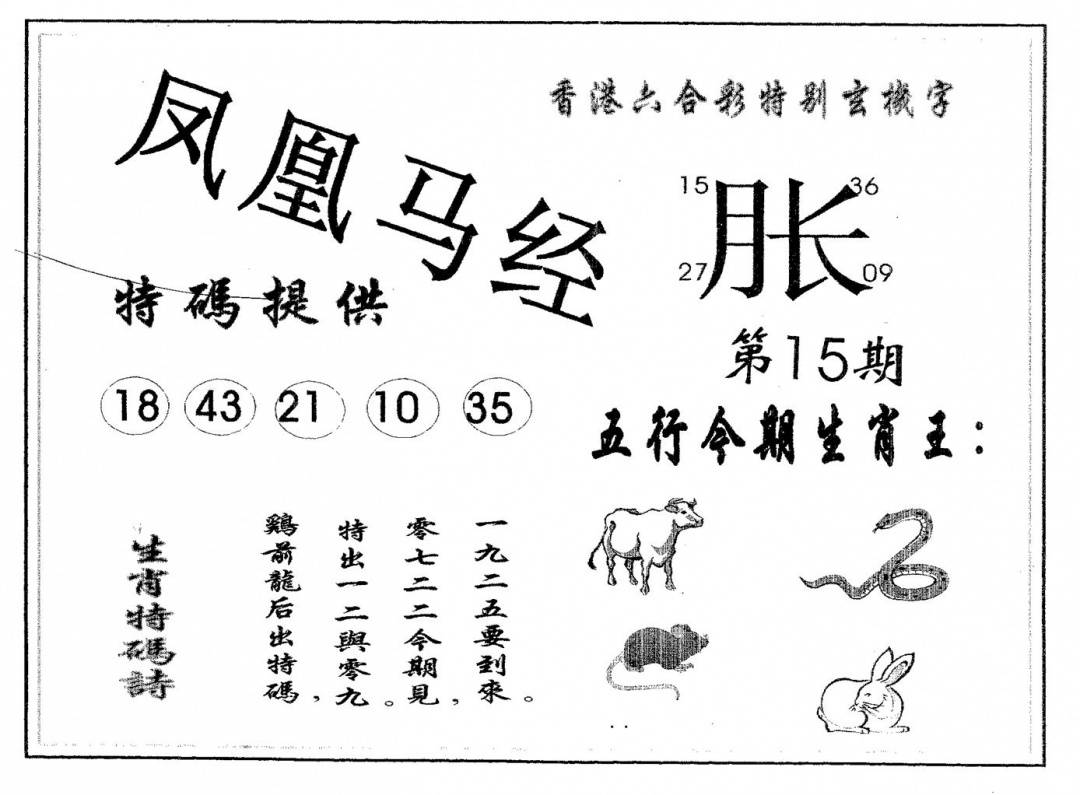 凤凰马经
香港六合彩特别玄機字
15 36
胀
27 09
特碼提供
第15期
18 43 21 10 35
五行今期生肖王：
生肖特碼詩
鷄前龍后出特碼，
特出一二與零九。
零七二二今期見，
一九二五要到來。